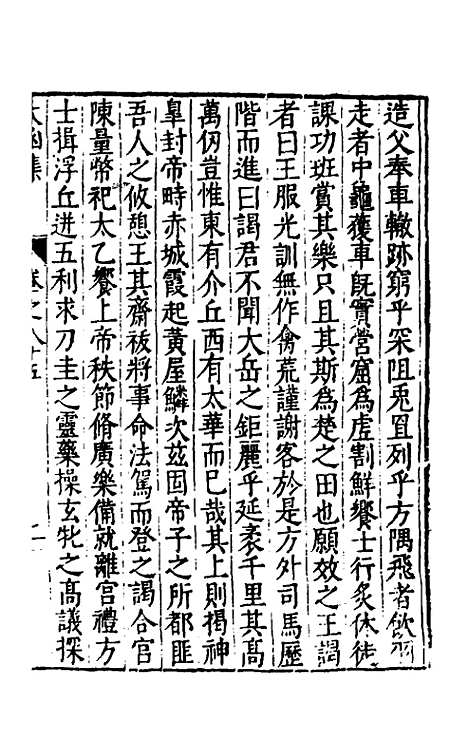 造父奉車轍跡窮乎罙阻兎罝列乎方隅飛者飲羽
走者中䶂獲車旣實營窟爲虛割鮮饗士行炙休徒
課功班賞其樂只且其斯爲楚之田也願效之王謁
者曰王服光訓無作禽荒謹謝客於是方外司馬歷
階而進曰謁君不聞大岳之鉅麗乎延袤千里其高
萬仭豈惟東有介丘西有太華而巳哉其上則揭神
臯封帝畤赤城霞起黃屋鱗次玆固帝子之所都匪
吾人之攸憇王其齋祓將事命法駕而登之謁合官
陳量幣祀太乙饗上帝秩節脩廣樂備就離宫禮方
士揖浮丘進五利求刀圭之靈藥操玄牝之髙議探
太函集
卷之八十五